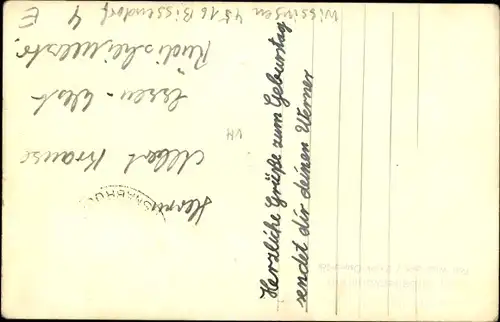 Wissingen 4516 Bissendorf 4
Herzliche Grüße zum Geburtstag
sendet dir deinen Werner
VH
Herrn
Albert Krause
Essen-West
Rüdesheimerstr.